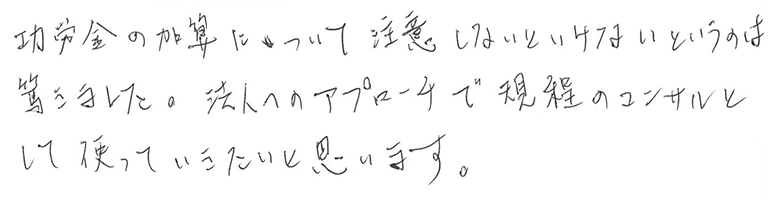 功労金の加算について注意しないといけないというのは
驚きました。法人へのアプローチで規程のコンサルと
して使っていきたいと思います。